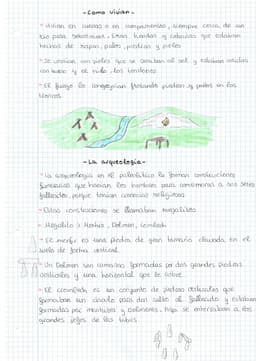 - Como vivían -
- Vivían en cuevas o en campamentos, siempre cerca de un
río para abastecerse. Eran tiendas y cabañas que estaban
hechas de ramas, palos, piedras y pieles
- Se vestían con pieles que se secaban al sol y estaban cosidas
con hueso y el hilo, los tendones.
- El fuego lo conseguían frotando piedras y palos en los
troncos.
- La arqueología -
- La arqueología en el paleolítico la forman construcciones
funerarias que hacían los hombres para conmemorar a sus seres
fallecidos, porque tenían creencias religiosas
- Estas construcciones se llamaban megalitos
- Megalito: Menhir, Dolmen, Cromlech
- El menhir es una piedra de gran tamaño clavada en el
suelo de forma vertical
- Un Dolmen son camaras formadas por dos grandes piedras
verticales y una horizontal que la cubre
- El cromlech es un conjunto de piedras verticales que
formaban un círculo para dar culto al fallecido y estaban
formadas por menhires y dolmens. Aquí se enterraban a los
grandes jefes de las tribus.